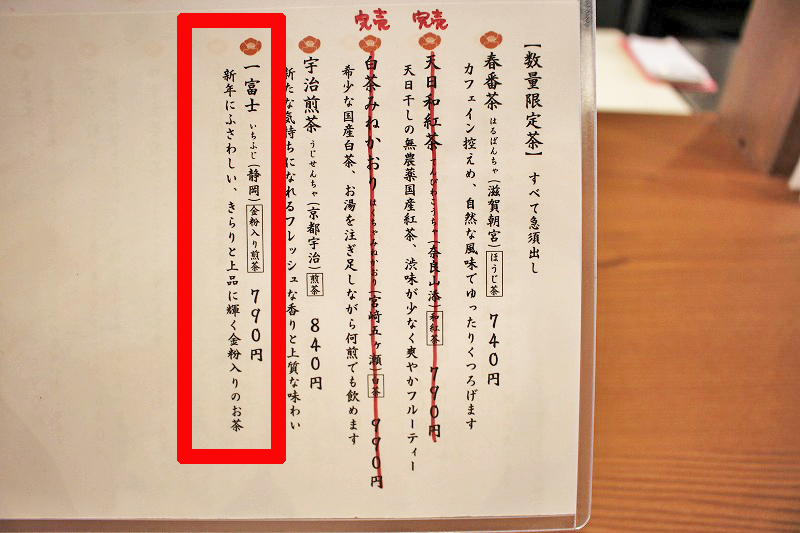 【数量限定茶】 すべて急須出し
春番茶 はるばんちゃ (滋賀朝宮) ほうじ茶 740円
カフェイン控えめ、自然な風味でゆったりくつろげます
完売
天日和紅茶 てんぴわこうちゃ (奈良山添) 和紅茶 790円
天日干しの無農薬国産紅茶、渋味が少なく爽やかフルーティー
完売
白茶みねかおり はくちゃみねかおり (宮崎五ヶ瀬) 白茶 990円
希少な国産白茶、お湯を注ぎ足しながら何煎でも飲めます
宇治煎茶 うじせんちゃ (京都宇治) 煎茶 840円
新たな気持ちになれるフレッシュな香りと上質な味わい
一富士 いちふじ (静岡) 金粉入り煎茶 790円
新年にふさわしい、きらりと上品に輝く金粉入りのお茶